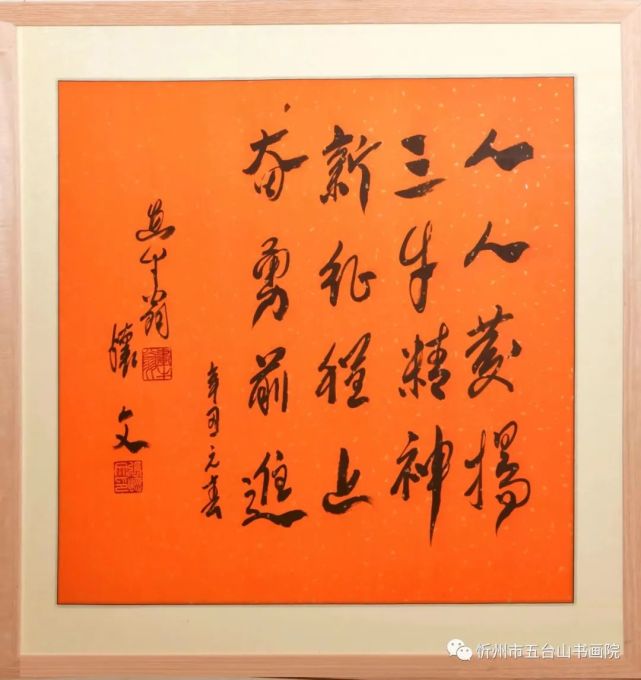 人人发扬
三牛精神
新征程上
奋勇前进
辛丑元春
怀文
忻州市五台山书画院